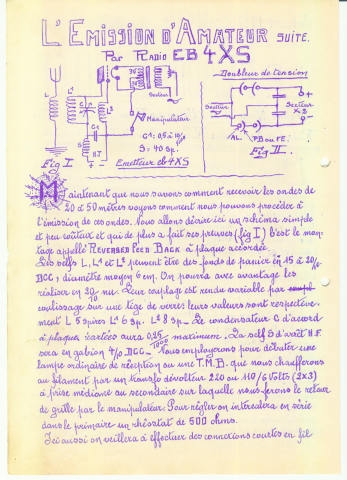 L'EMISSION D'AMATEUR SUITE.
Par RADIO EB4XS
Doubleur de tension
Secteur
Manipulateur
Secteur
Secteur X 2
C1: 0,5 à
S = 40 sp.
AL.
PB ou FE.
Fig I
HT
Emetteur eb4XS
Fig. II.
Maintenant que nous savons comment recevoir les ondes de
20 à 50 mètres voyons comment nous pouvons procéder à
l'émission de ces ondes. Nous allons décrire ici un schéma simple
et peu coûteux et qui de plus a fait ses preuves (fig I) C'est le mon-
tage appellé REVERSED FEED BACK à plaque accordée.
Les selfs L, L1 et L2 peuvent être des fonds de panier en 15 à 20/10
DCC; diamètre moyen 6 cm. On pourra avec avantage les
réaliser en 20/10 nu. Leur couplage est rendu variable par
coulissage sur une tige de verre; leurs valeurs sont respective-
ment L 5 spires L1 6 sp. L2 8 sp. Le condensateur C d'accord
à plaques écartées aura 0,25/1000 maximum. La self S d'arrêt H.F.
sera en gabion 4/10 DCC. Nous employerons pour débuter une
lampe ordinaire de réception ou une T.M.B. que nous chaufferons
au filament par un transfo dévolteur 220 ou 110/6 Volts (2x3)
à prise médiane au secondaire sur laquelle nous ferons le retour
de grille par le manipulateur. Pour régler on intercalera en série
dans le primaire un rhéostat de 500 ohms.
Ici aussi on veillera à effectuer des connexions courtes en fil